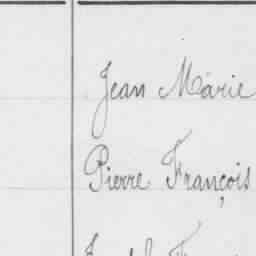 Jean Marie
Pierre François